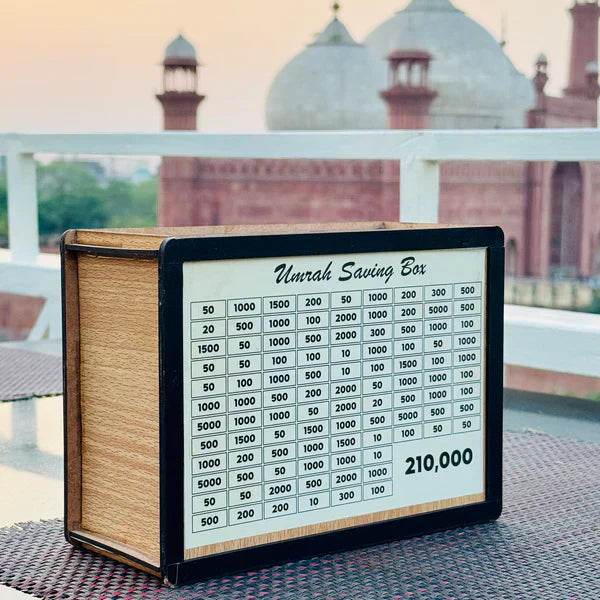 Umrah Saving Box
50 1000 1500 200 50 1000 200 300 500
20 500 1000 100 2000 1000 500 5000 1000
1500 50 1000 500 2000 300 500 1000 100
50 50 100 100 10 1000 100 50 1000
50 100 1000 500 1000 100 1500 100 1000
1000 1000 500 200 2000 50 100 1000 500
500 1000 1000 50 2000 200 500 2000 50
5000 1500 500 1500 1000 500 5000 1000 500
1000 200 50 1000 1500 10 100 50 50
5000 500 50 1000 50 1000
50 50 2000 500 2000 1000
500 200 200 10 300 100
210,000